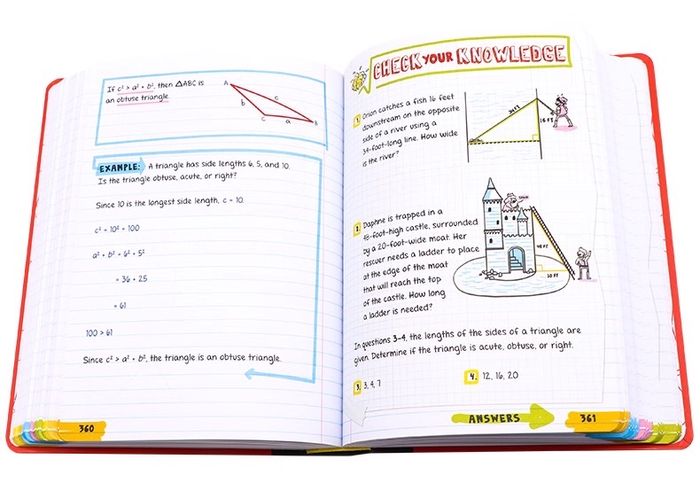 If c² > a² + b², then △ABC is
an obtuse triangle.
A
b
c
C
a
B
EXAMPLE: A triangle has side lengths 6, 5, and 10.
Is the triangle obtuse, acute, or right?
Since 10 is the longest side length, c = 10.
c² = 10² = 100
a² + b² = 6² + 5²
= 36 + 25
= 61
100 > 61
Since c² > a² + b², the triangle is an obtuse triangle.
360
CHECK YOUR KNOWLEDGE
1. Orion catches a fish 16 feet
downstream on the opposite
side of a river using a
34-foot-long line. How wide
is the river?
34 FT
2. Daphne is trapped in a
48-foot-high castle, surrounded
by a 20-foot-wide moat. Her
rescuer needs a ladder to place
at the edge of the moat
that will reach the top
of the castle. How long
a ladder is needed?
48 FT
20 FT
In questions 3-4, the lengths of the sides of a triangle are
given. Determine if the triangle is acute, obtuse, or right.
3. 3, 4, 7
4. 12, 16, 20
ANSWERS
361